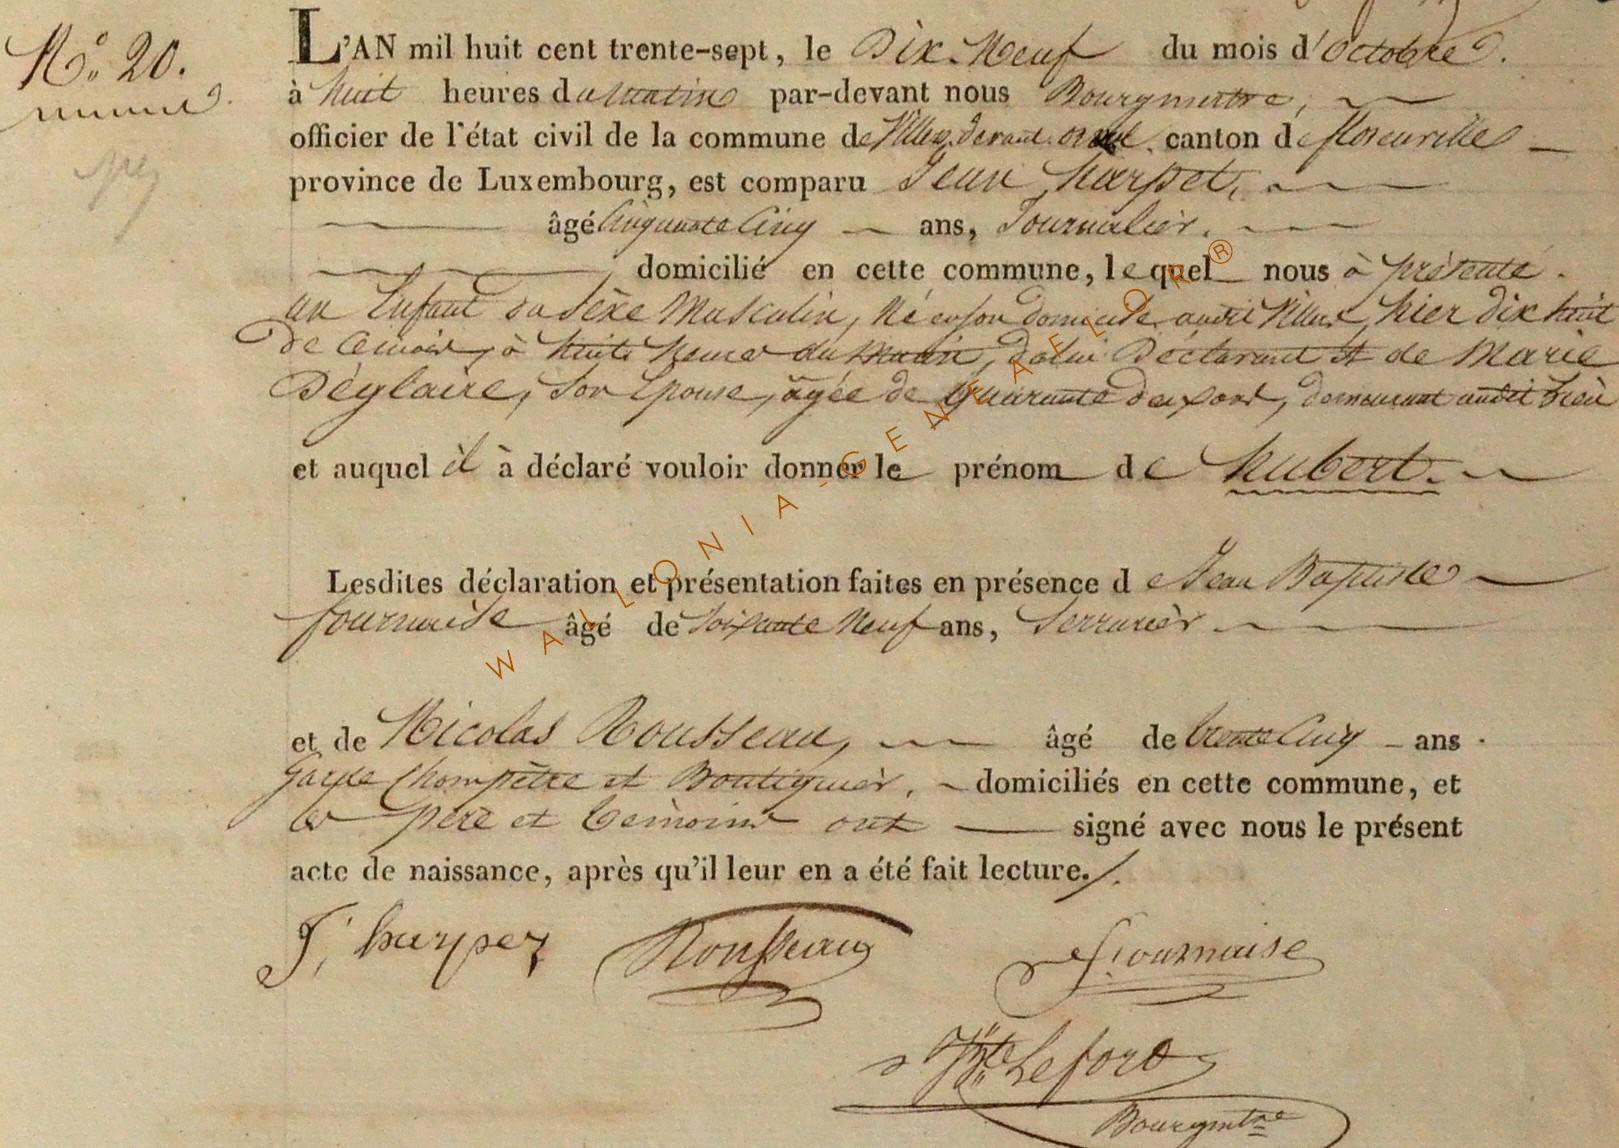 N.° 20.
L'AN mil huit cent trente-sept, le Dix-Neuf du mois d'octobre.
à huit heures du Matin par-devant nous Bourgmestre,
officier de l'état civil de la commune de Villers devant orval. canton de florenville
province de Luxembourg, est comparu Jean harpet,
âgé Cinquante Cinq ans, Journalier.
domicilié en cette commune, lequel nous à présenté.
un Enfant du Sèxe Masculin, Né en son domicile audit Villers, hier dix huit
de ce mois, à huit heures du Matin, de lui Déclarant et de Marie
Déglaire, Son Epouse, âgée de quarante deux ans, demeurant audit Lieu
et auquel il à déclaré vouloir donner le prénom de hubert.
Lesdites déclaration et présentation faites en présence de Jean Baptiste
fournaise âgé de Soixante Neuf ans, Serrurièr
et de Nicolas Rousseau, âgé de trente Cinq ans
Garde Champètre et Boutiquier, domiciliés en cette commune, et
les père et témoins ont signé avec nous le présent
acte de naissance, après qu'il leur en a été fait lecture./.
J, harpez Rousseau fournaise
Lefort
Bourgmtre
WALLONIA-GENEAELOR®